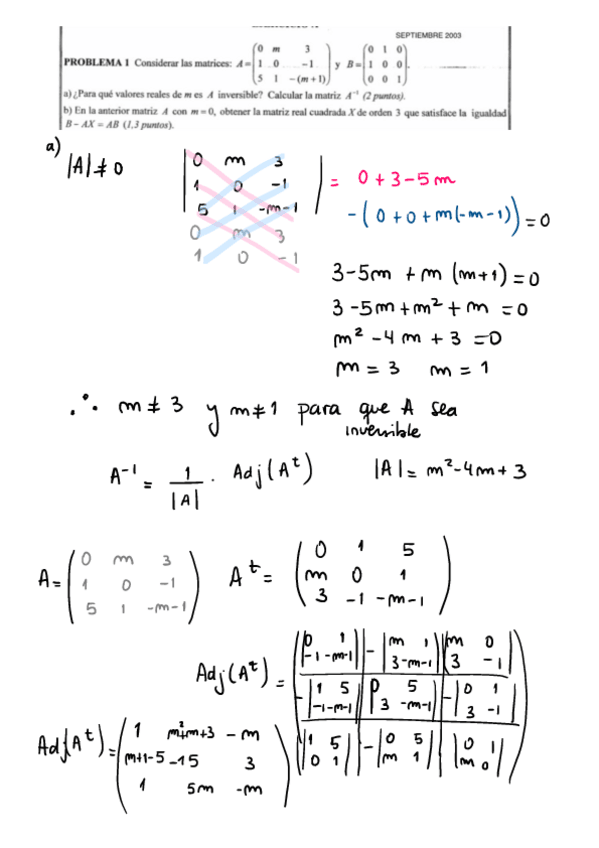 SEPTIEMBRE 2003
PROBLEMA 1 Considerar las matrices: A = ( 0 m 3 ; 1 0 -1 ; 5 1 -(m+1) ) y B = ( 0 1 0 ; 1 0 0 ; 0 0 1 ).
a) ¿Para qué valores reales de m es A inversible? Calcular la matriz A⁻¹ (2 puntos).
b) En la anterior matriz A con m=0, obtener la matriz real cuadrada X de orden 3 que satisface la igualdad
B - AX = AB (1,3 puntos).
a)
|A| ≠ 0
| 0 m 3 | = 0 + 3 - 5m
| 1 0 -1 |
| 5 1 -m-1 | - ( 0 + 0 + m(-m-1)) = 0
0 m 3
1 0 -1
3 - 5m + m (m+1) = 0
3 - 5m + m² + m = 0
m² - 4m + 3 = 0
m = 3 m = 1
∴ m ≠ 3 y m ≠ 1 para que A sea
inversible
A⁻¹ = 1/|A| · Adj(Aᵗ) |A| = m² - 4m + 3
A = ( 0 m 3 ; 1 0 -1 ; 5 1 -m-1 ) Aᵗ = ( 0 1 5 ; m 0 1 ; 3 -1 -m-1 )
Adj(Aᵗ) = ( |0 1 ; -1 -m-1| -|m 1 ; 3 -m-1| |m 0 ; 3 -1|
-|1 5 ; -1 -m-1| |0 5 ; 3 -m-1| -|0 1 ; 3 -1|
|1 5 ; 0 1| -|0 5 ; m 1| |0 1 ; m 0| )
Adj(Aᵗ) = ( 1 m²+m+3 -m ; m+1-5 -15 3 ; 1 5m -m )